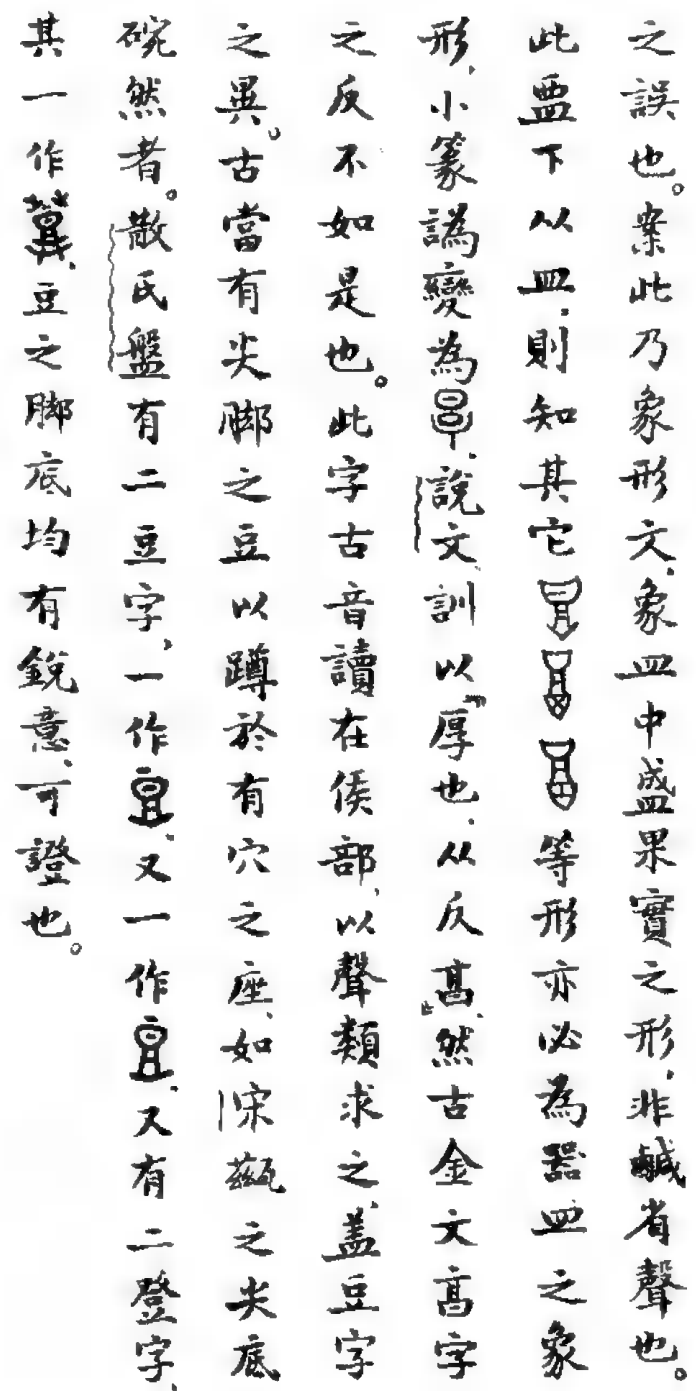 之誤也。案此乃象形文、象皿中盛果實之形、非鹹省聲也。
此盢下从皿、則知其它等形亦必為器皿之象
形、小篆譌變為、說文訓以「厚也、从反亯」、然古金文亯字
之反不如是也。此字古音讀在侯部、以聲類求之、蓋豆字
之異。古當有尖腳之豆以蹲於有穴之座、如宋瓷甌之尖底
碗然者。散氏盤有二豆字、一作、又一作、又有二登字、
其一作、豆之腳底均有銳意、可證也。